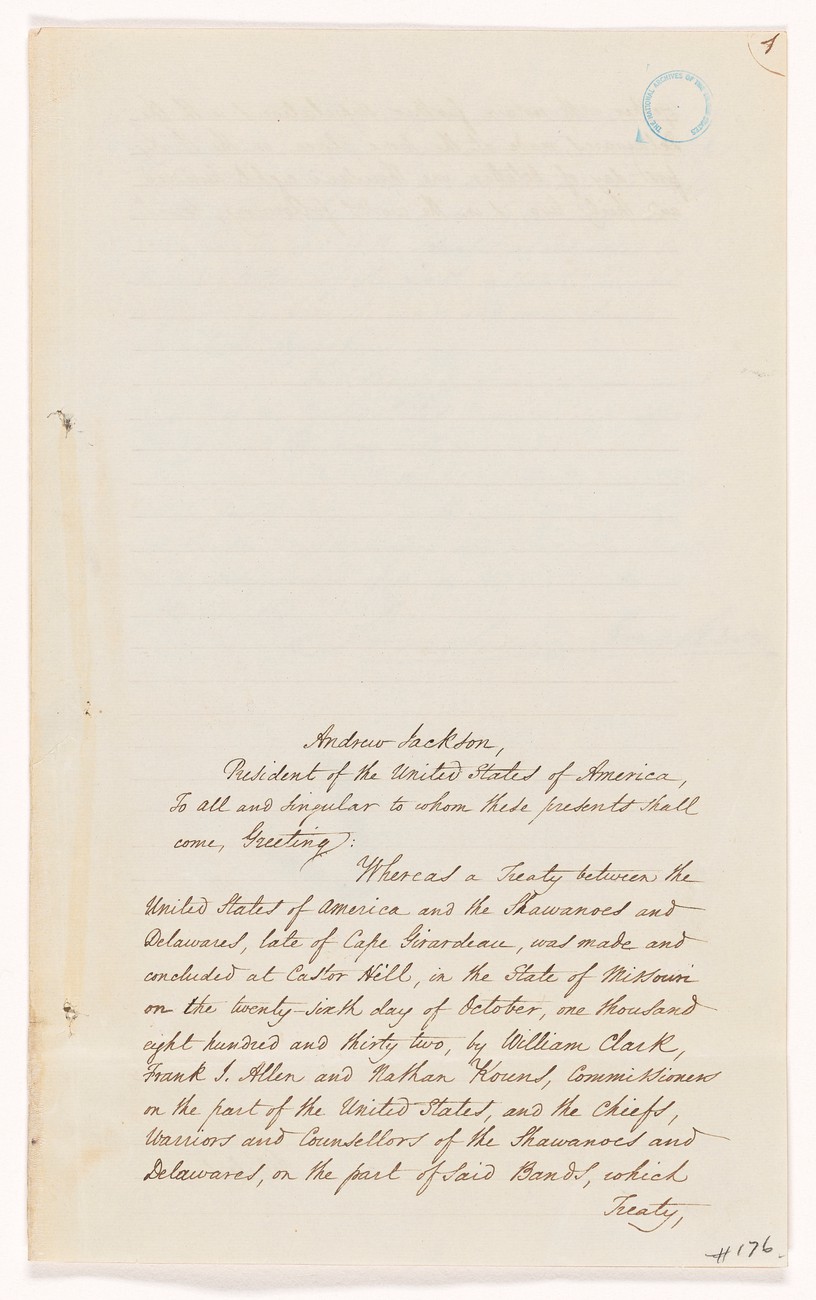 1
THE NATIONAL ARCHIVES OF THE UNITED STATES
Andrew Jackson,
President of the United States of America,
To all and singular to whom these presents shall
come, Greeting:
Whereas a Treaty between the
United States of America and the Shawanoes and
Delawares, late of Cape Girardeau, was made and
concluded at Castor Hill, in the State of Missouri
on the twenty-sixth day of October, one thousand
eight hundred and thirty two, by William Clark,
Frank J. Allen and Nathan Kouns, Commissioners
on the part of the United States, and the Chiefs,
Warriors and Counsellors of the Shawanoes and
Delawares, on the part of said Bands, which
Treaty,
#176.